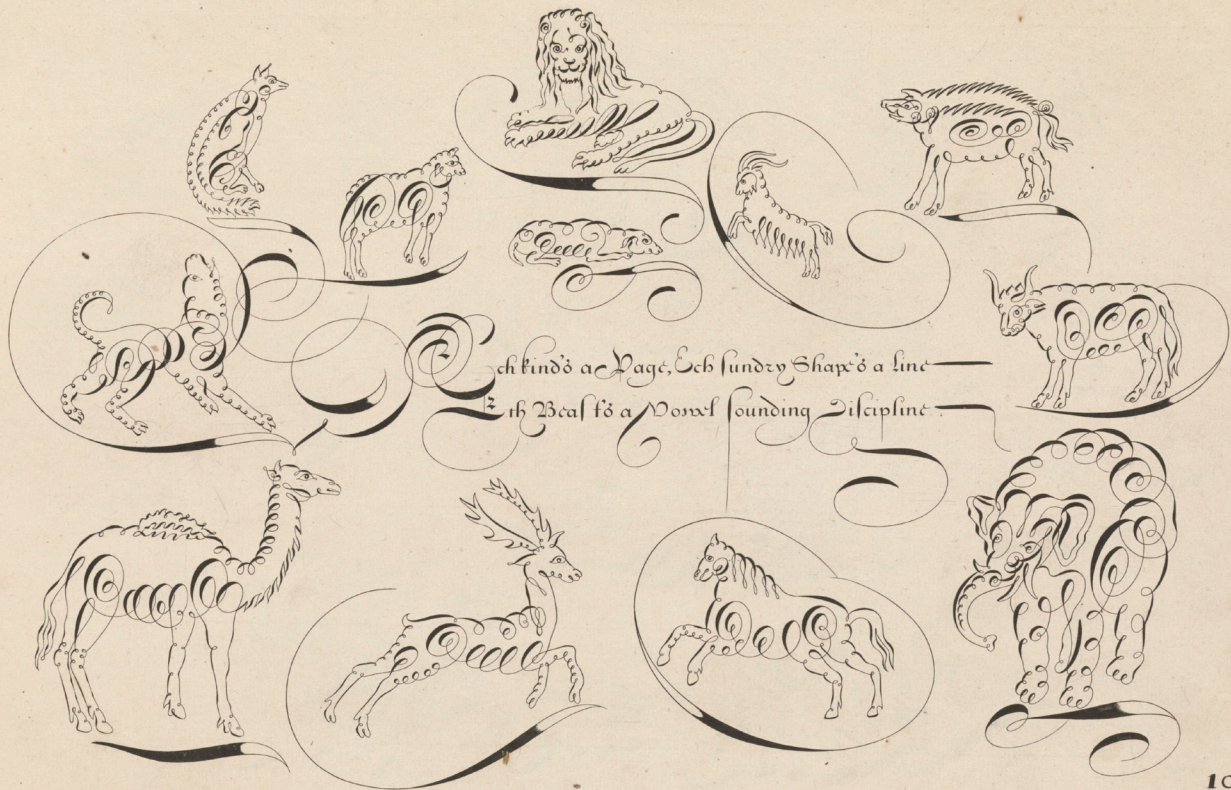 Ech kind's a Page, Ech sundry Shape's a line
Eth Beast's a Vowel sounding Discipline.
10